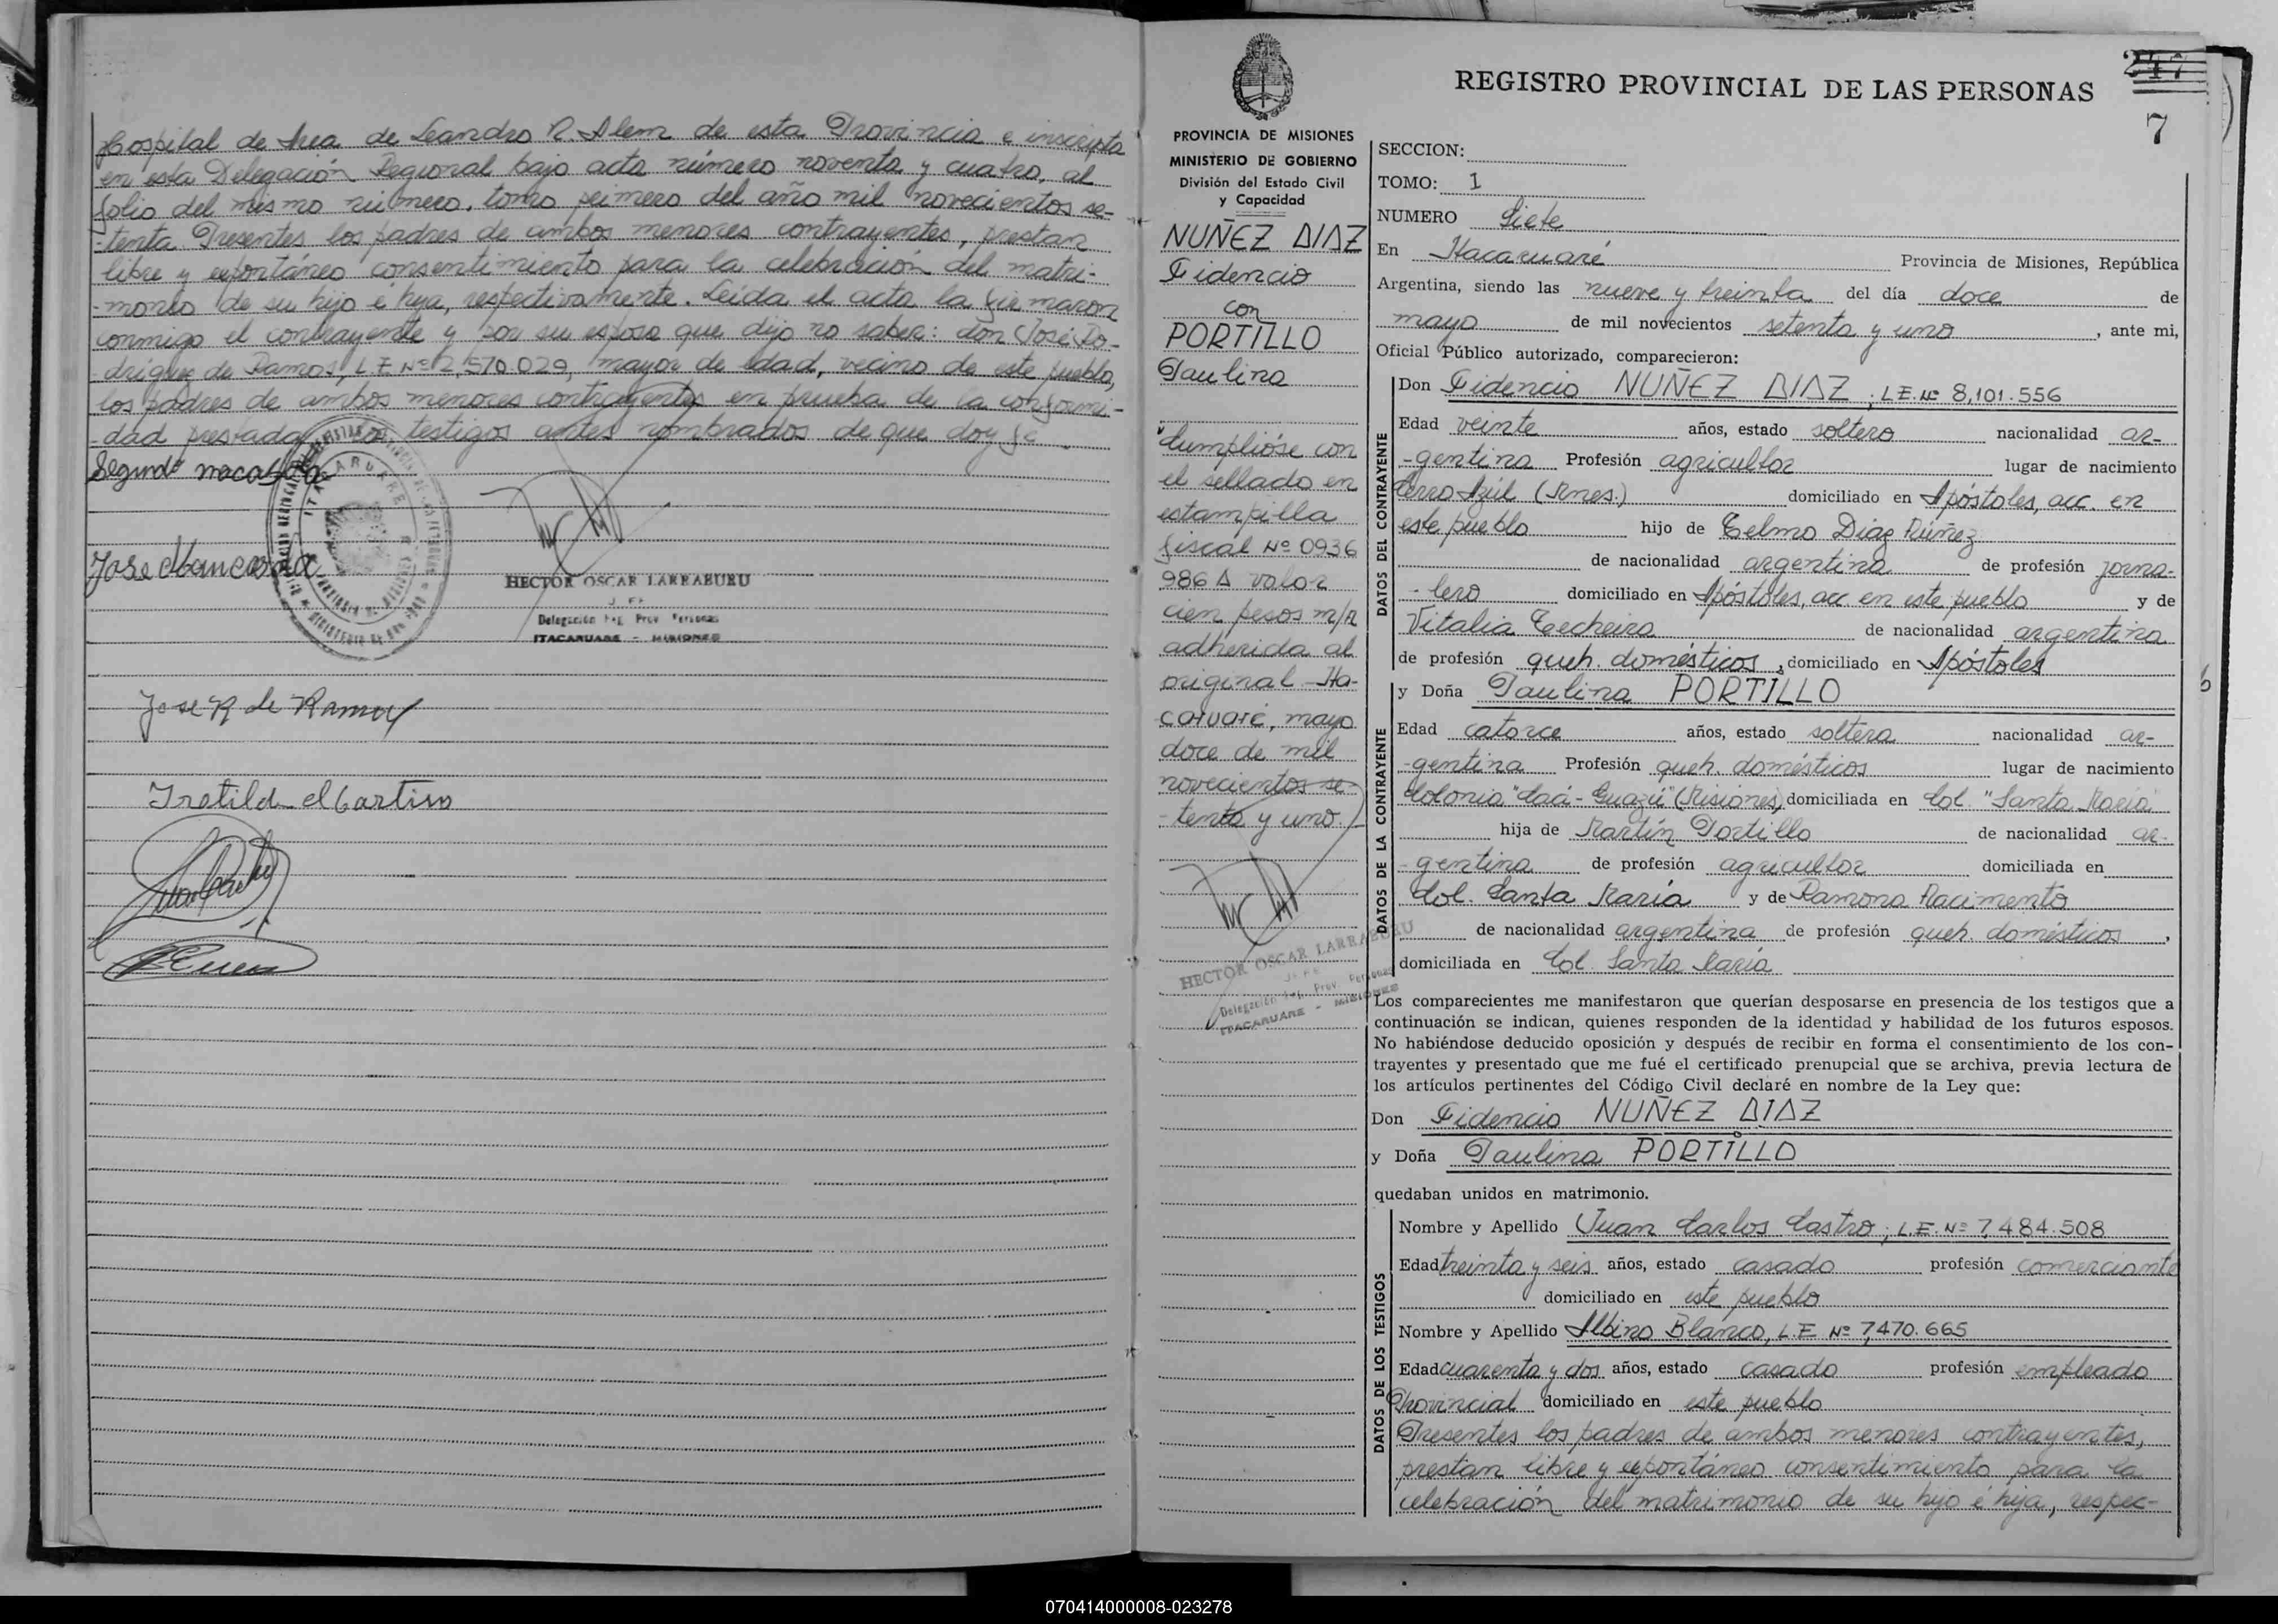 Hospital de Area de Leandro N. Alem de esta Provincia e inscripta
en esta Delegación Regional bajo acta número noventa y cuatro, al
folio del mismo número, tomo primero del año mil novecientos se-
-tenta. Presentes los padres de ambos menores contrayentes, prestan
libre y espontáneo consentimiento para la celebración del matri-
-monio de su hijo é hija, respectivamente. Leida el acta la firmaron
conmigo el contrayente y por su esposa que dijo no saber: don José Ro-
-driguez de Ramos, L.E Nº 2,570.029, mayor de edad, vecino de este pueblo,
los padres de ambos menores contrayentes en prueba de la conformi-
-dad prestada testigos antes nombrados de que doy fé
Segundo
Jose
HECTOR OSCAR LARRABURU
Delegación Reg. Prov. Personas
ITACARUARE - MISIONES
Jose R de Ramos
247
7
REGISTRO PROVINCIAL DE LAS PERSONAS
PROVINCIA DE MISIONES
MINISTERIO DE GOBIERNO
División del Estado Civil
y Capacidad
NUÑEZ DIAZ
Fidencio
con
PORTILLO
Paulina
Cumplióse con
el sellado en
estampilla
fiscal Nº 0936
986 A valor
cien pesos m/n
adherida al
original. Ita-
caruaré, mayo
doce de mil
novecientos se-
-tenta y uno.
HECTOR OSCAR LARRABURU
Delegación Reg. Prov. Personas
ITACARUARE - MISIONES
SECCION:
TOMO: 1
NUMERO Siete
En Itacaruaré Provincia de Misiones, República
Argentina, siendo las nueve y treinta del día doce de
mayo de mil novecientos setenta y uno, ante mi,
Oficial Público autorizado, comparecieron:
DATOS DEL CONTRAYENTE
Don Fidencio NUÑEZ DIAZ; L.E. Nº 8,101.556
Edad veinte años, estado soltero nacionalidad ar-
-gentina Profesión agricultor lugar de nacimiento
Cerro Azúl (Mnes.) domiciliado en Apóstoles, acc. en
este pueblo hijo de Telmo Diaz Núñez
de nacionalidad argentina de profesión jorna-
-lero domiciliado en Apóstoles, acc en este pueblo y de
Vitalia Techeira de nacionalidad argentina
de profesión queh. domésticos, domiciliado en Apóstoles
DATOS DE LA CONTRAYENTE
y Doña Paulina PORTILLO
Edad catorce años, estado soltera nacionalidad ar-
-gentina Profesión queh. domésticos lugar de nacimiento
Colonia "Caá-Guazú" (Misiones) domiciliada en Col. "Santa María"
hija de Martín Portillo de nacionalidad ar-
-gentina de profesión agricultor domiciliada en
Col. Santa María y de Ramona Nacimento
de nacionalidad argentina de profesión queh. domésticos,
domiciliada en Col. Santa María
Los comparecientes me manifestaron que querían desposarse en presencia de los testigos que a
continuación se indican, quienes responden de la identidad y habilidad de los futuros esposos.
No habiéndose deducido oposición y después de recibir en forma el consentimiento de los con-
trayentes y presentado que me fué el certificado prenupcial que se archiva, previa lectura de
los artículos pertinentes del Código Civil declaré en nombre de la Ley que:
Don Fidencio NUÑEZ DIAZ
y Doña Paulina PORTILLO
quedaban unidos en matrimonio.
DATOS DE LOS TESTIGOS
Nombre y Apellido Juan Carlos Castro; L.E. Nº 7,484.508
Edad treinta y seis años, estado casado profesión comerciante
domiciliado en este pueblo
Nombre y Apellido Albino Blanco, L.E Nº 7,470.665
Edad cuarenta y dos años, estado casado profesión empleado
Provincial domiciliado en este pueblo
Presentes los padres de ambos menores contrayentes,
prestan libre y espontáneo consentimiento para la
celebración del matrimonio de su hijo é hija, respec-
070414000008-023278